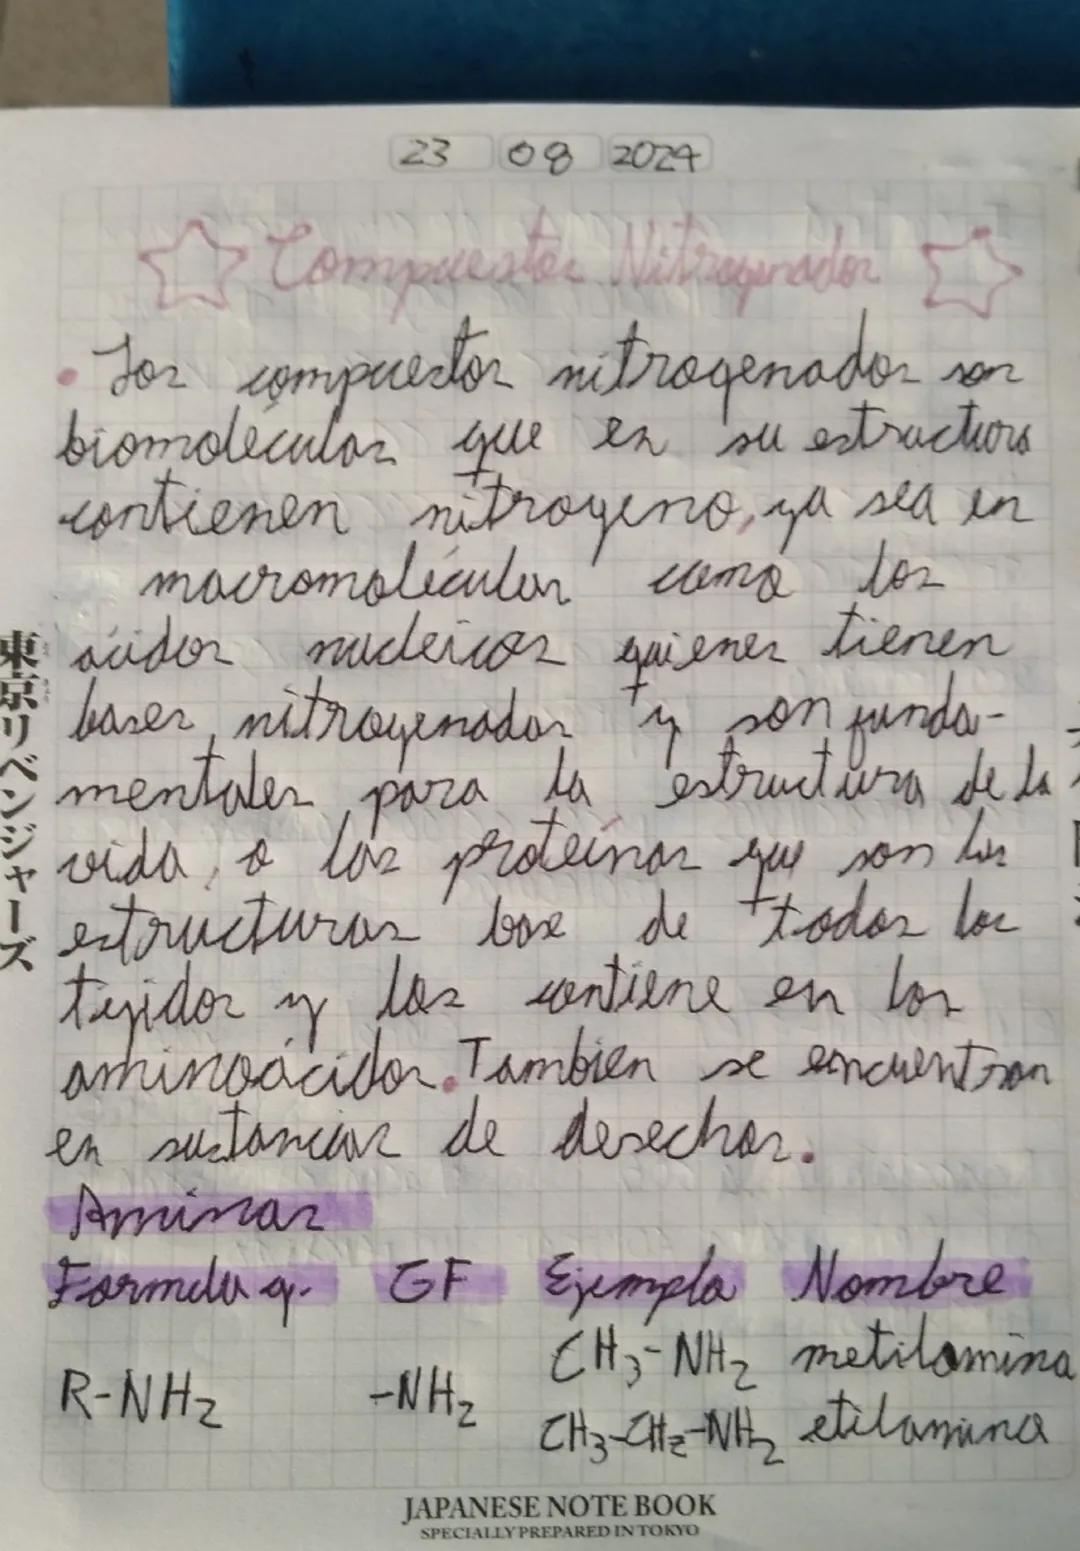 23 08 2024
Compuestos Nitrogenados
• Los compuestos nitrogenados son
biomoléculas que en su estructura
contienen nitrogeno, ya sea en
macromoléculas como los
ácidos nucleicos quienes tienen
bases nitrogenadas y son funda-
mentales para la estructura de la
vida, o las proteínas que son las
estructuras base de todos los
tejidos y las contiene en los
aminoácidos. Tambien se encuentran
en sustancias de desechos.
Aminas
Formula q. GF Ejemplo Nombre
CH3-NH2 metilamina
R-NH2 -NH2
CH3-CH2-NH2 etilamina
東京リベンジャーズ
JAPANESE NOTE BOOK
SPECIALLY PREPARED IN TOKYO